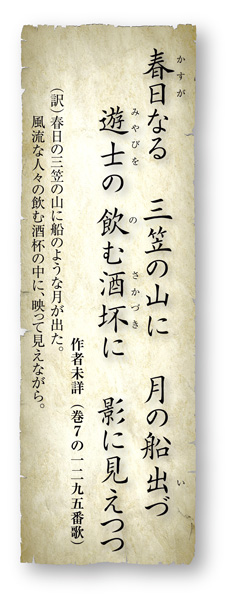 春日なる 三笠の山に 月の船出づ
遊士の 飲む酒坏に 影に見えつつ
作者未詳（巻7の一二九五番歌）
（訳）春日の三笠の山に船のような月が出た。
風流な人々の飲む酒杯の中に、映って見えながら。
かすが
い
みやびを
の
さかづき